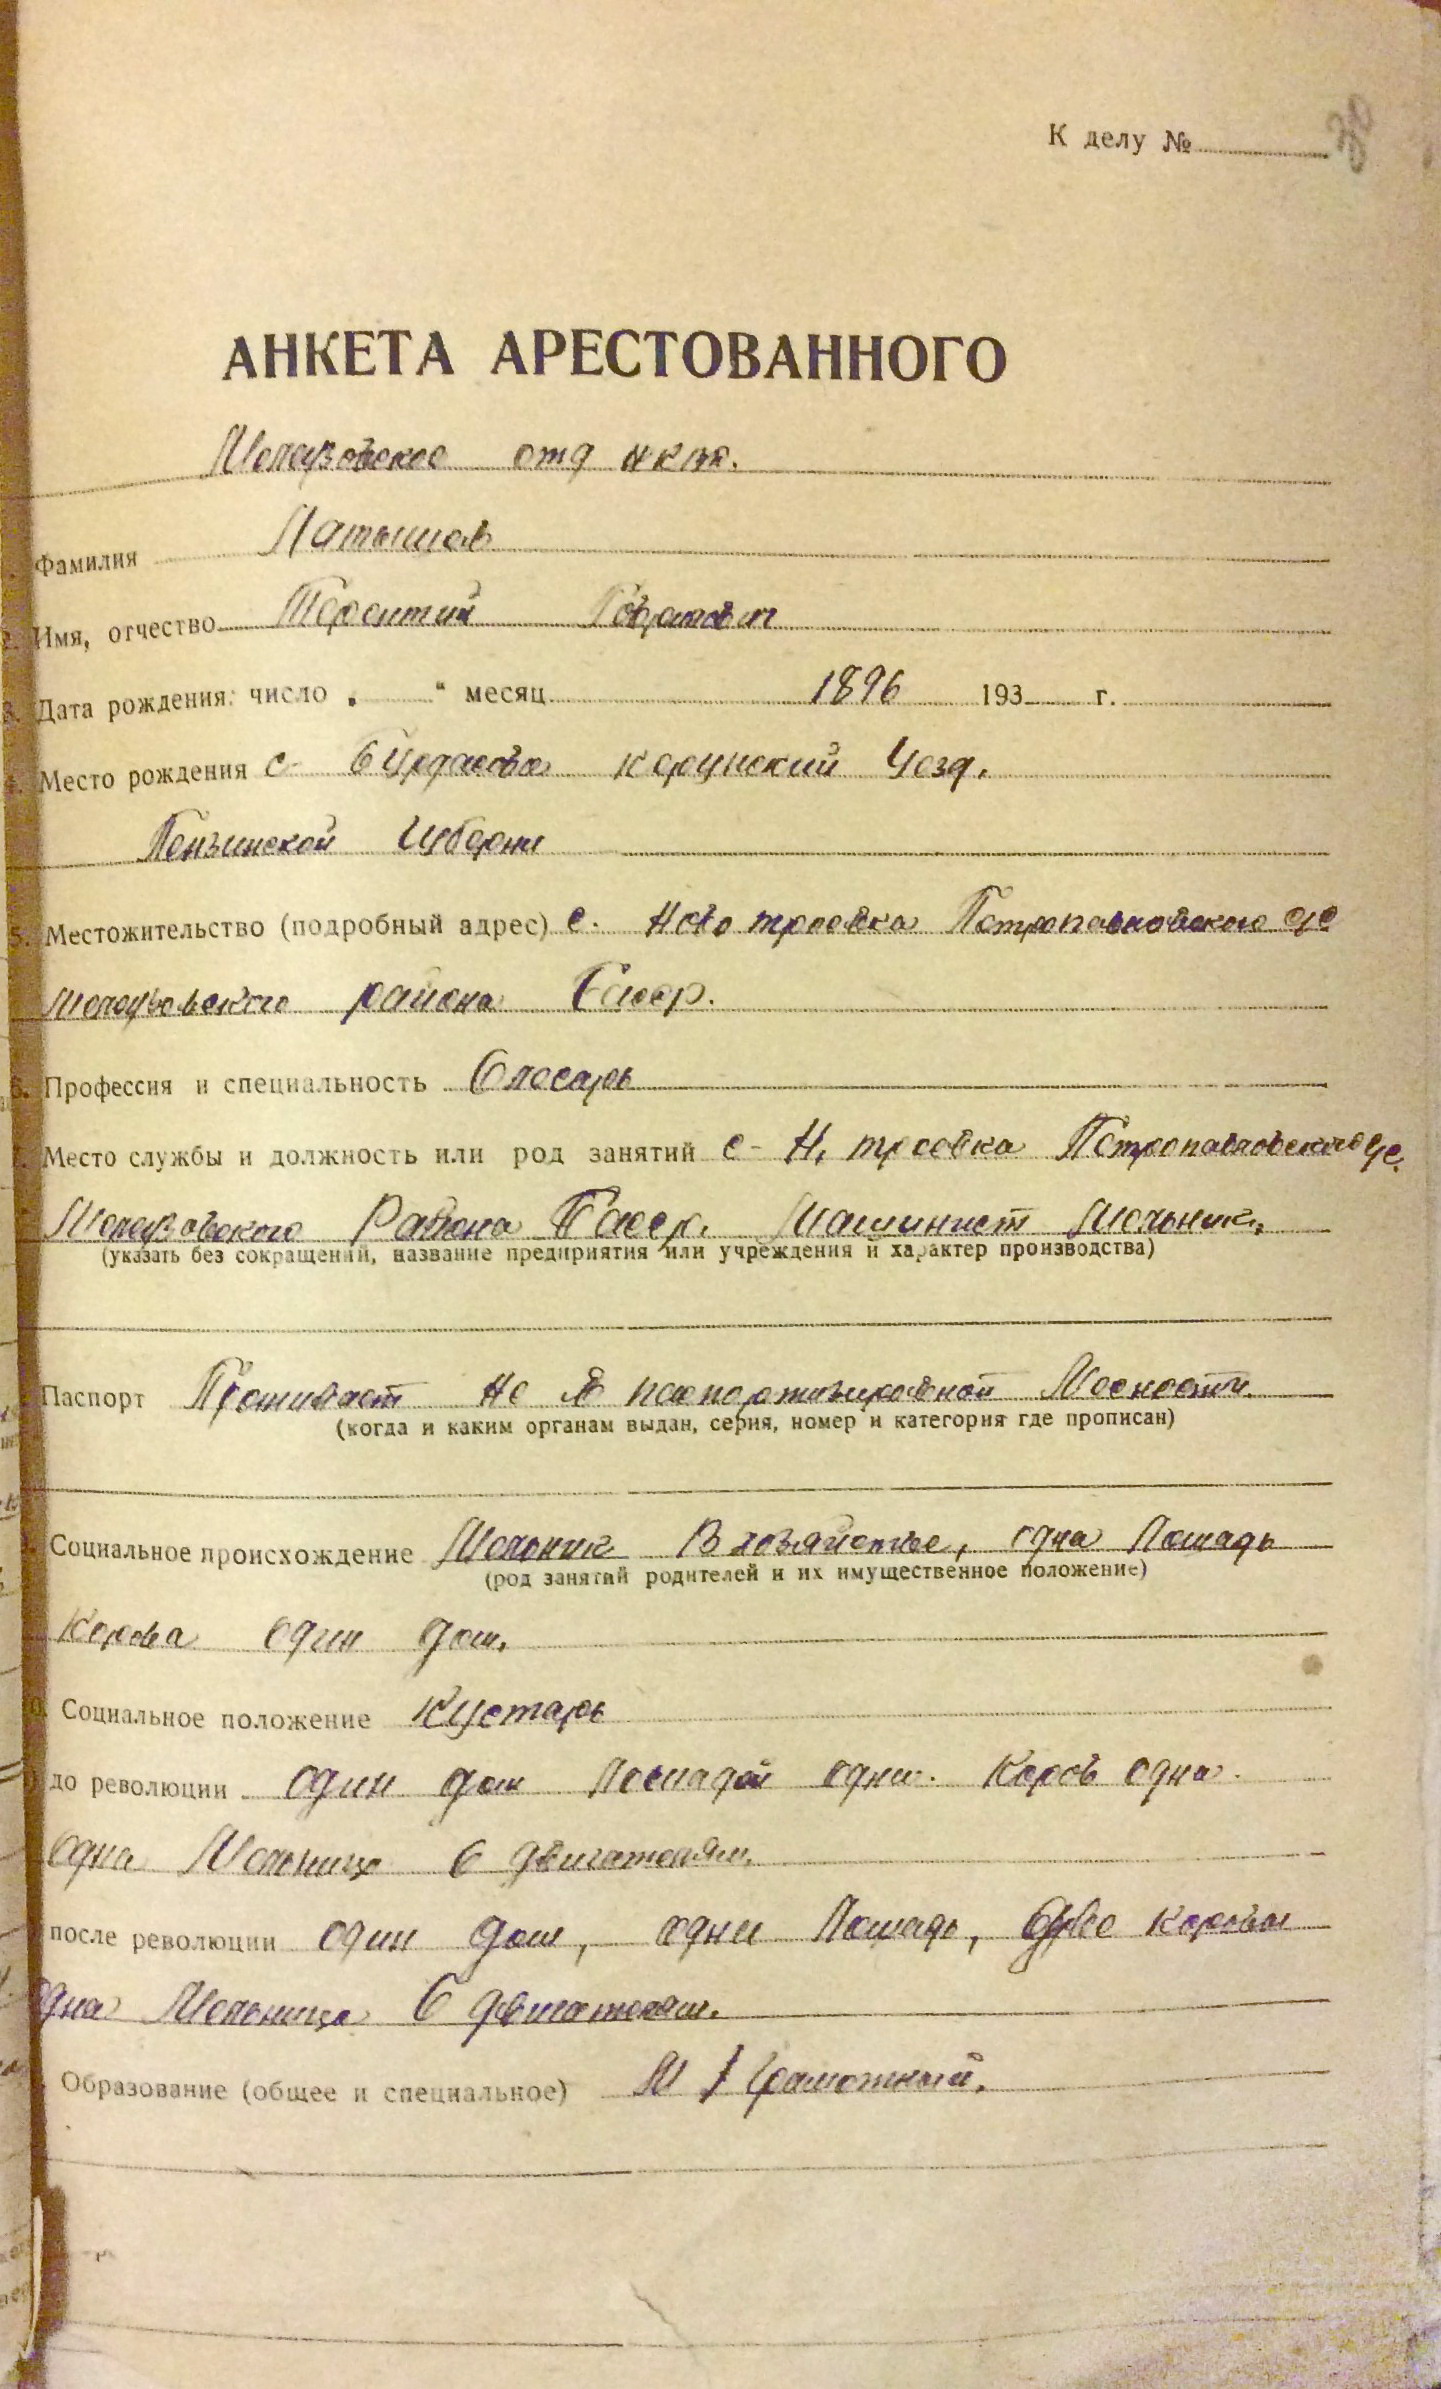 К делу № 30
АНКЕТА АРЕСТОВАННОГО
Мелеузовское отд нквд.
Фамилия Латышов
2. Имя, отчество Терентий
3. Дата рождения: число „ “ месяц 1896 193 г.
4. Место рождения с- Бурдасова керинский Уезд.
Пензинской Губерни
5. Местожительство (подробный адрес) с. Ново троевка Петропавловского с/с
Мелеузовского района Басср.
6. Профессия и специальность Слесарь
7. Место службы и должность или род занятий с- Н. троевка Петропавловского с/с.
Мелеузовского Района Басср. Машинист Мельник.
(указать без сокращений, название предприятия или учреждения и характер производства)
Паспорт Проживает не в паспортизированой Месности.
(когда и каким органам выдан, серия, номер и категория где прописан)
Социальное происхождение Мельник В хозяйстве, одна Лошадь
(род занятий родителей и их имущественное положение)
Корова один дом.
Социальное положение Кустарь
до революции один дом Лошадей одни. Коров одна.
Одна Мельница с двигателям.
после революции один дом, одни Лошадь, две коровы
одна Мельница с двигателям.
Образование (общее и специальное) М/Грамотный.